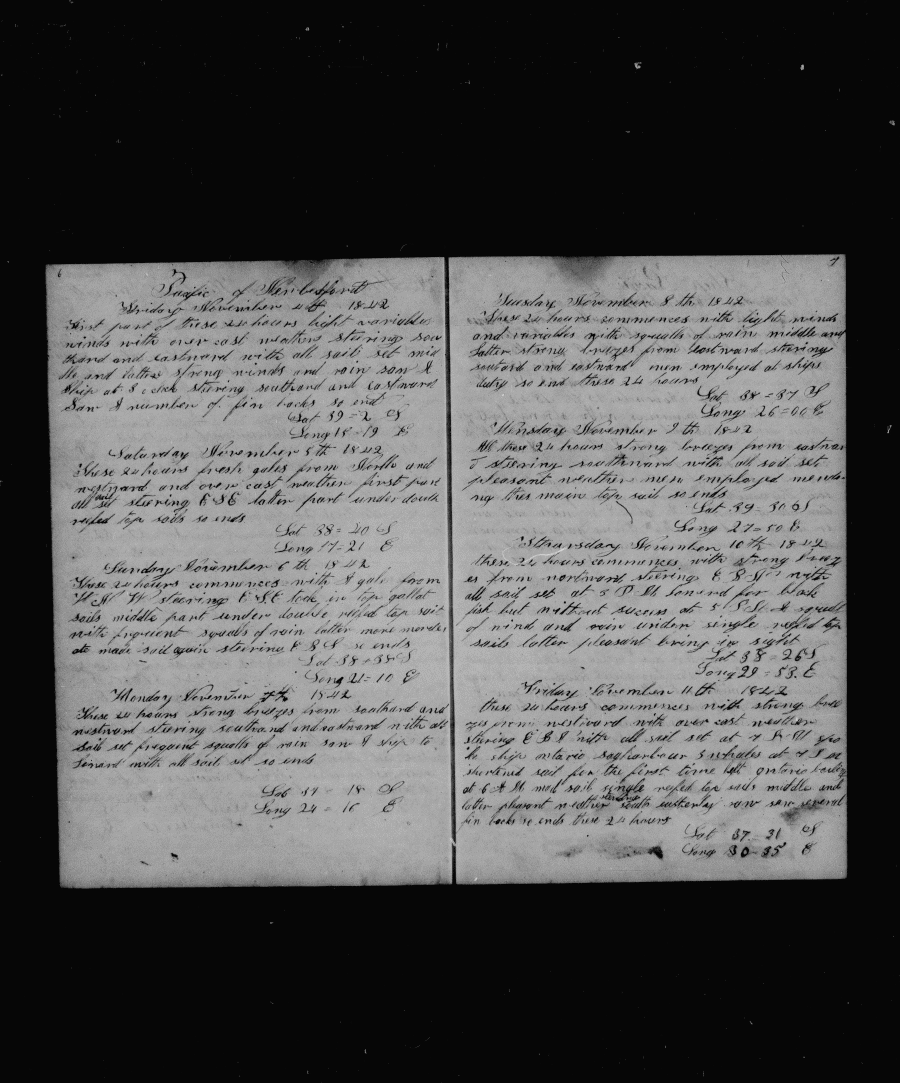 6
Pacific of Newbedford
Friday November 4th 1842
First part of these 24 hours light variable
winds with over cast weather steering sou
thard and eastward with all sail set mid
dle and latter strong winds and rain saw A
ship at 3 clock stering southard and eastward
Saw A number of fin backs so end
Lat 39=2 S
Long 18=19 E
Saturday November 5th 1842
These 24 hours fresh gales from North and
westward and over cast weather first part
all sail set steering E S E latter part under double
reefed top sails so ends
Lat 38=40 S
Long 17=21 E
Sunday November 6th 1842
These 24 hours commences with A gale from
W N W steering E S E took in top gallat
sails middle part under double refed top sail
with frequent squals of rain latter more moder
ate made sail again steering E B S so ends
Lat 38=38 S
Long 21=10 E
Monday November 7th 1842
These 24 hours strong breezes from southard and
westward steering southard and eastward with all
sail set frequent squals of rain saw A ship to
leward with all sail set so ends
Lat 39 = 18 S
Long 24 = 16 E
7
Tuesday November 8th 1842
These 24 hours commences with light winds
and variables with squalls of rain middle and
Latter strong breezes from Eastward steering
southard and eastward men employed at ships
duty so end these 24 hours
Lat 38=37 S
Long 26=00 E
Wensday November 9th 1842
All these 24 hours strong breezes from eastwar
d steering southward with all sail set
pleasant weather men employed mende
ng this main top sail so ends
Lat 39=30 S
Long 27=50 E
Thursday November 10th 1842
these 24 hours commences with strong breez
es from nortward steering E B N with
all sail set at 3 P M lowerd for black
fish but without success at 5 P M A squall
of wind and rain under single reefed top
sails latter pleasant bring in sight
Lat 38=26 S
Long 29=53 E
Friday November 11th 1842
these 24 hours commences with strong bree
zes from westward with over cast weather
steering E B S with all sail set at 7 A M spo
ke ship ontario sagharbour 3 whales at 7 P M
shortened sail for the first time left ontario boiling
at 6 A M mad sail single reefed top sails middle and
latter pleasant weather steering south easterly saw several
fin backs so ends these 24 hours
Lat 37=31 S
Long 30=35 E